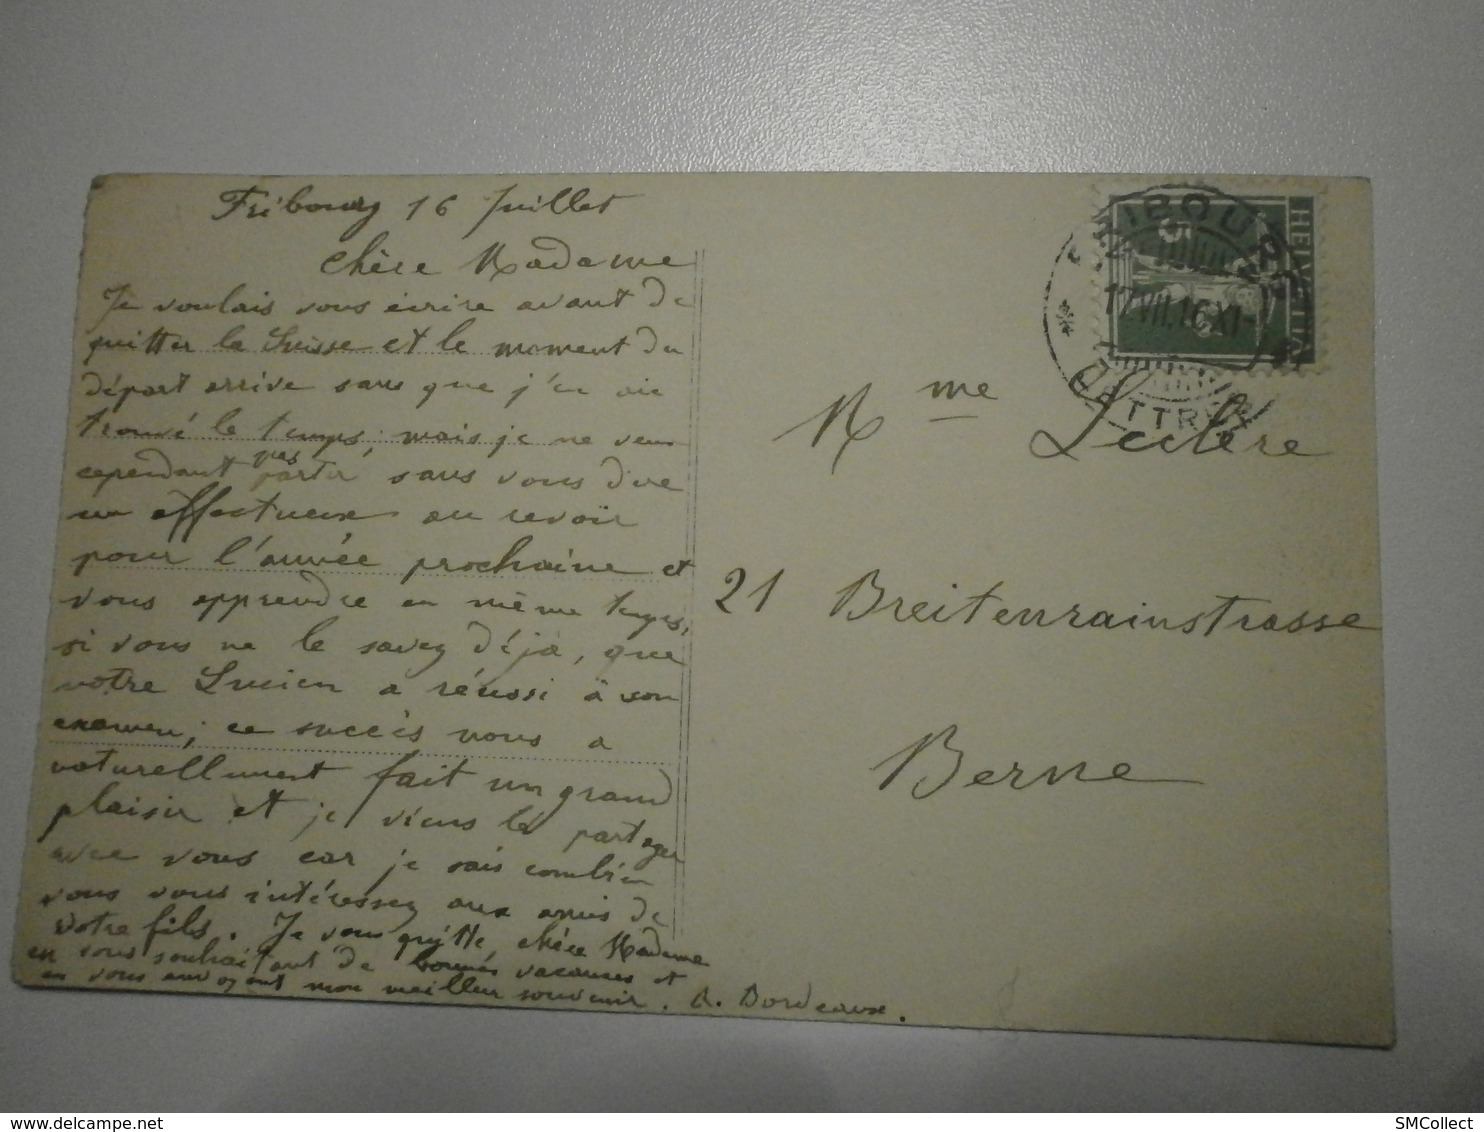 Fribourg 16 Juillet
Chère Madame
Je voulais vous écrire avant de
quitter la Suisse et le moment du
départ arrive sans que j'en aie
trouvé le temps; mais je ne veux
cependant pas partir sans vous dire
un affectueux au revoir
pour l'année prochaine et
vous apprendre en même temps,
si vous ne le savez déjà, que
votre Lucien a réussi à son
examen; ce succès nous a
naturellement fait un grand
plaisir et je viens le partager
avec vous car je sais combien
vous vous intéressez aux amis de
votre fils. Je vous quitte, chère Madame
en vous souhaitant de bonnes vacances et
en vous envoyant mon meilleur souvenir. A. Bordeaux.
HELVETIA
5
FRIBOURG
17.VII.16.XI
LETTRES
Mme Leclère
21 Breitenrainstrasse
Berne
SMCollect
www.delcampe.net